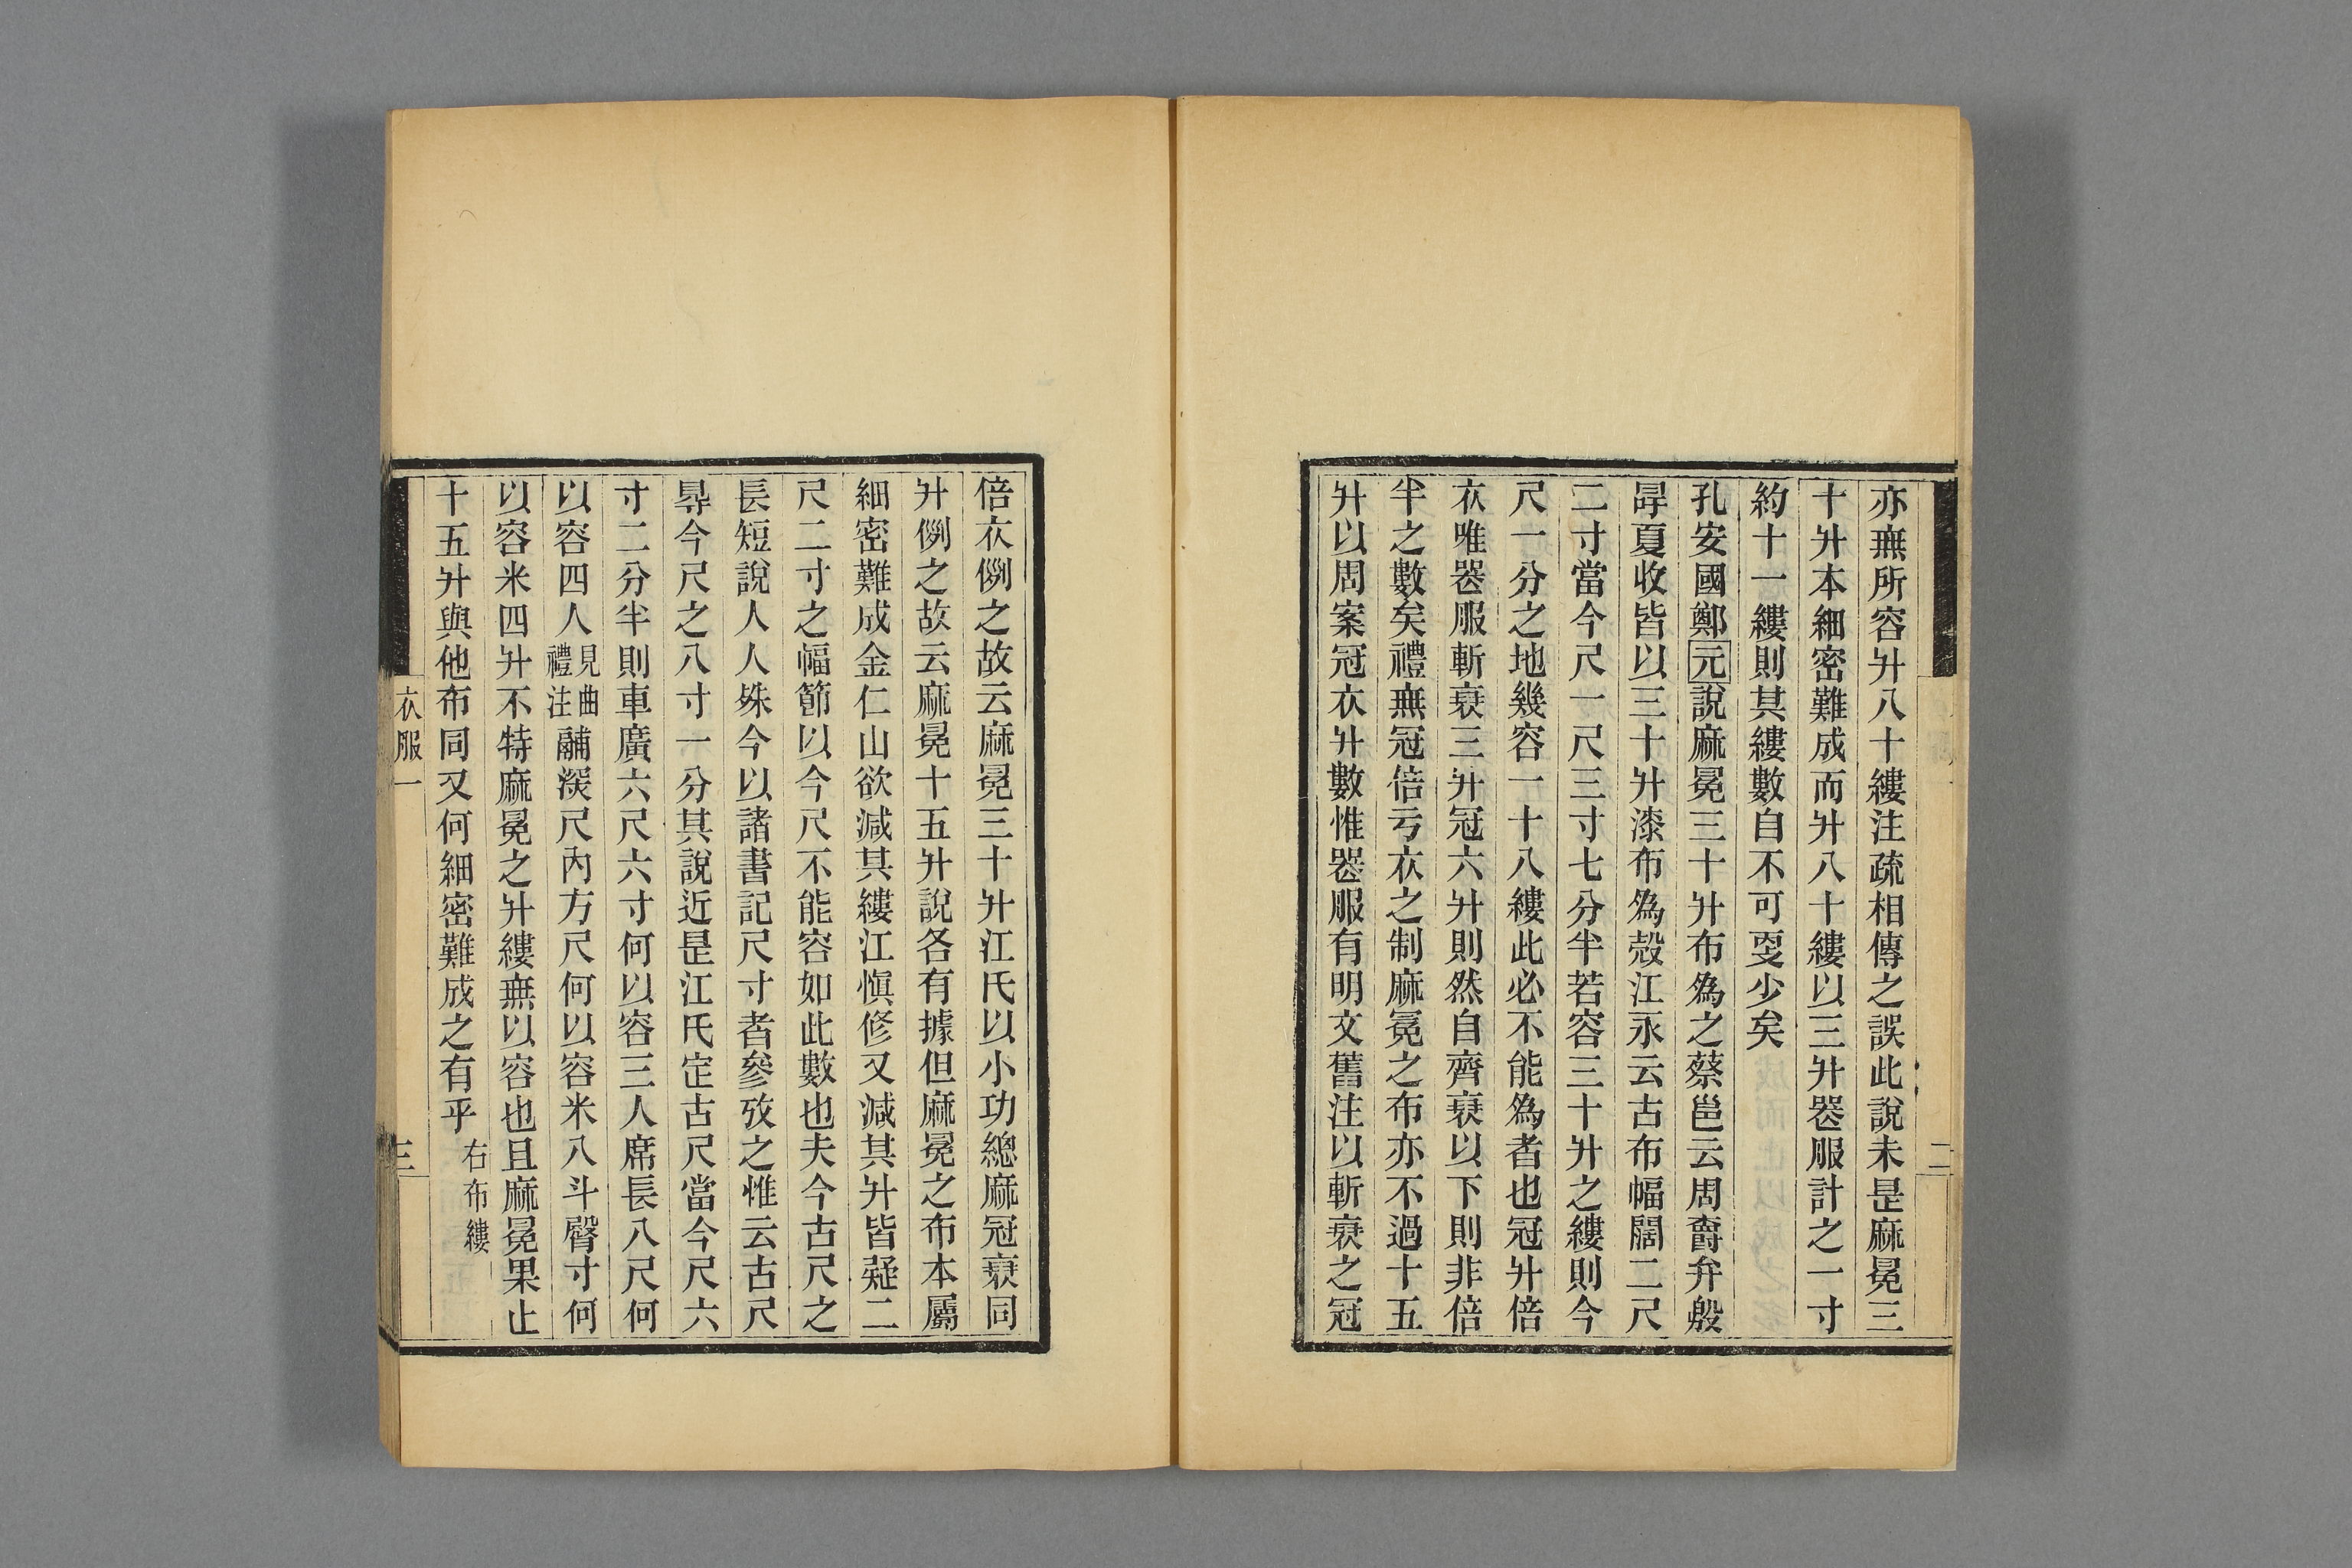 亦無所容升八十縷注疏相傳之誤此說未是麻冕三
十升本細密難成而升八十縷以三升器服計之一寸
約十一縷則其縷數自不可㪅少矣
孔安國鄭元說麻冕三十升布爲之蔡邕云周爵弁殷
冔夏收皆以三十升漆布爲殼江永云古布幅闊二尺
二寸當今尺一尺三寸七分半若容三十升之縷則今
尺一分之地幾容一十八縷此必不能爲者也冠升倍
衣唯器服斬衰三升冠六升則然自齊衰以下則非倍
半之數矣禮無冠倍亏衣之制麻冕之布亦不過十五
升以周案冠衣升數惟器服有明文舊注以斬衰之冠
倍衣例之故云麻冕三十升江氏以小功緦麻冠衰同
升例之故云麻冕十五升說各有據但麻冕之布本屬
細密難成金仁山欲減其縷江愼修又減其升皆疑二
尺二寸之幅節以今尺不能容如此數也夫今古尺之
長短說人人殊今以諸書記尺寸者參攷之惟云古尺
㝵今尺之八寸一分其說近是江氏定古尺當今尺六
寸二分半則車廣六尺六寸何以容三人席長八尺何
以容四人見曲禮注鬴深尺內方尺何以容米八斗臀寸何
以容米四升不特麻冕之升縷無以容也且麻冕果止
十五升與他布同又何細密難成之有乎 右布縷
衣服一
三
二